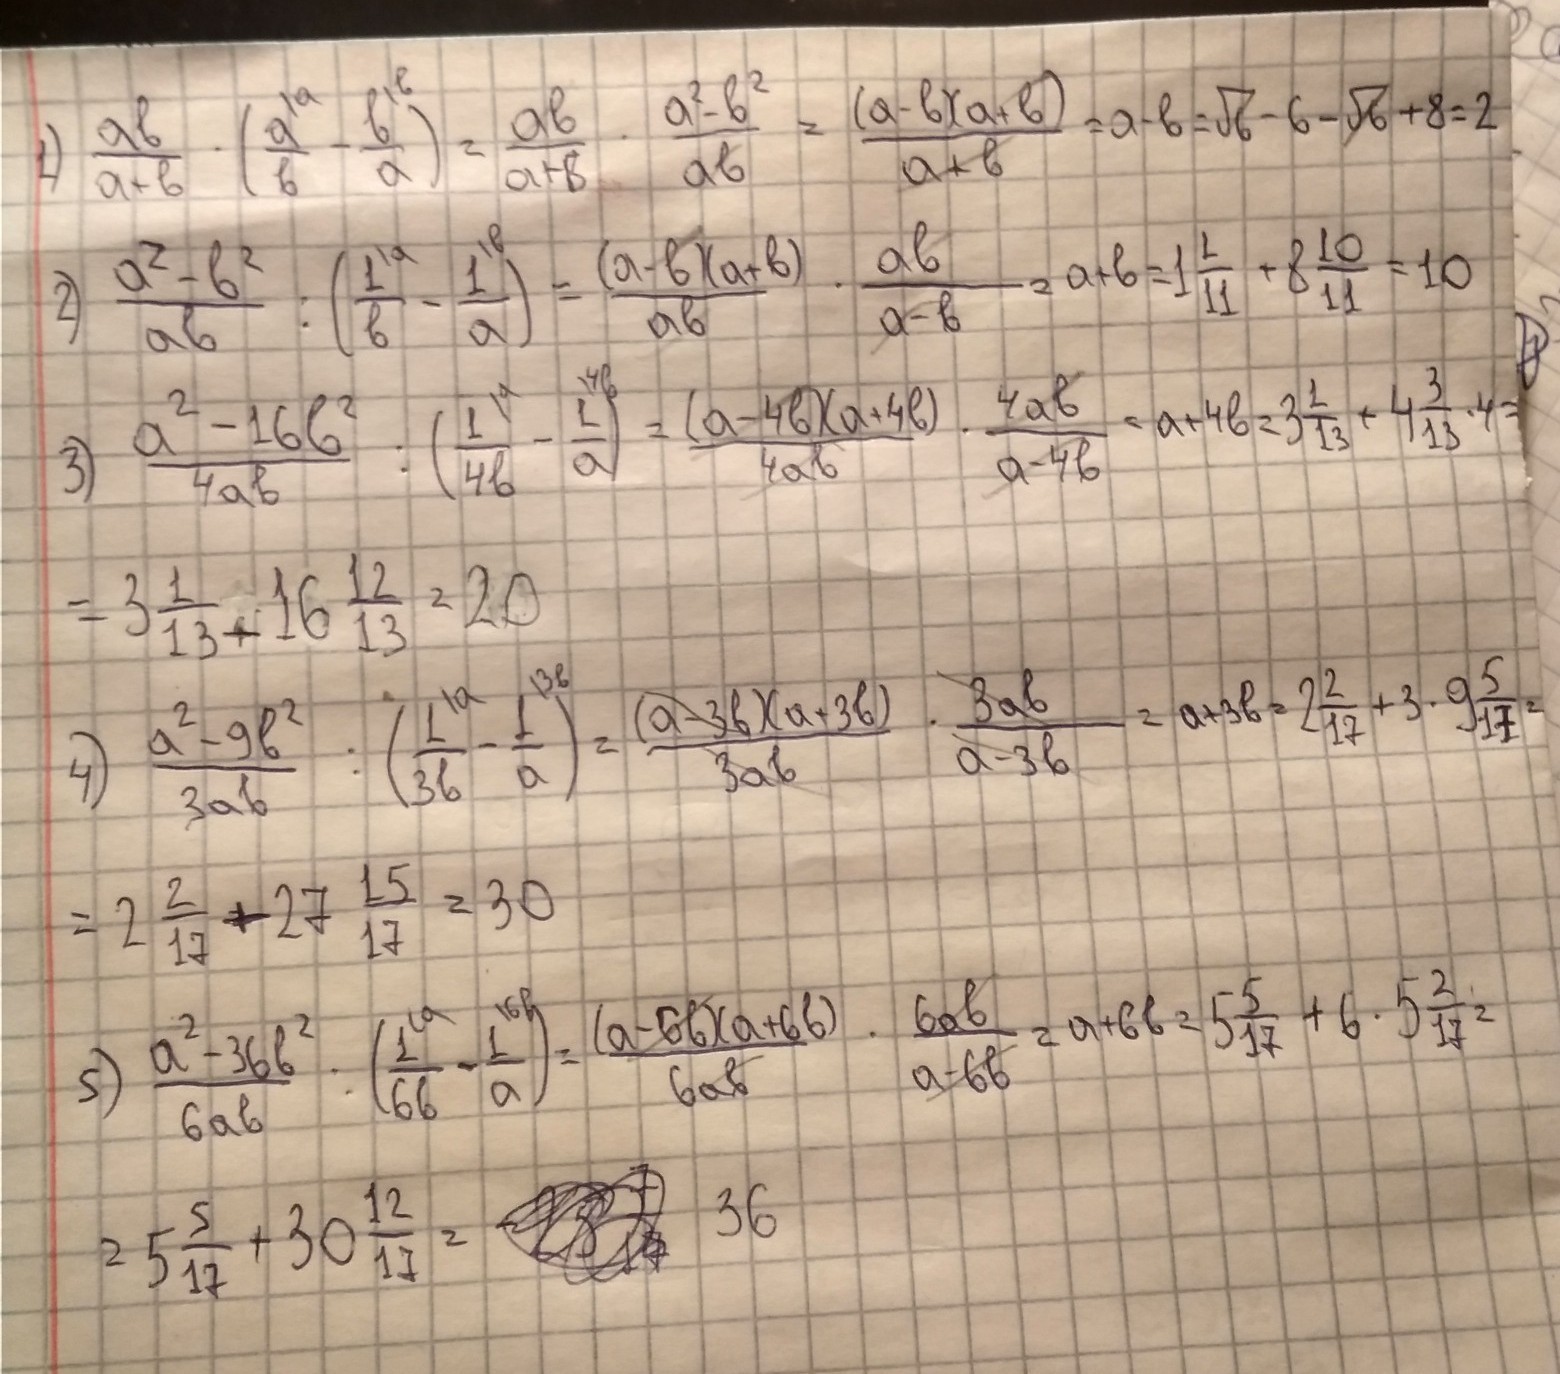 1) \frac{ab}{a+b} \cdot \left(\frac{a^{\backslash a}}{b} - \frac{b^{\backslash b}}{a}\right) = \frac{ab}{a+b} \cdot \frac{a^2-b^2}{ab} = \frac{(a-b)(a+b)}{a+b} = a-b = \sqrt{6} - 6 - \sqrt{6} + 8 = 2
2) \frac{a^2-b^2}{ab} : \left(\frac{1^{\backslash a}}{b} - \frac{1^{\backslash b}}{a}\right) = \frac{(a-b)(a+b)}{ab} \cdot \frac{ab}{a-b} = a+b = 1\frac{1}{11} + 8\frac{10}{11} = 10
3) \frac{a^2-16b^2}{4ab} : \left(\frac{1^{\backslash a}}{4b} - \frac{1^{\backslash 4b}}{a}\right) = \frac{(a-4b)(a+4b)}{4ab} \cdot \frac{4ab}{a-4b} = a+4b = 3\frac{1}{13} + 4\frac{3}{13} \cdot 4 =
= 3\frac{1}{13} + 16\frac{12}{13} = 20
4) \frac{a^2-9b^2}{3ab} : \left(\frac{1^{\backslash a}}{3b} - \frac{1^{\backslash 3b}}{a}\right) = \frac{(a-3b)(a+3b)}{3ab} \cdot \frac{3ab}{a-3b} = a+3b = 2\frac{2}{17} + 3 \cdot 9\frac{5}{17} =
= 2\frac{2}{17} + 27\frac{15}{17} = 30
5) \frac{a^2-36b^2}{6ab} : \left(\frac{1^{\backslash a}}{6b} - \frac{1^{\backslash 6b}}{a}\right) = \frac{(a-6b)(a+6b)}{6ab} \cdot \frac{6ab}{a-6b} = a+6b = 5\frac{5}{17} + 6 \cdot 5\frac{2}{17} =
= 5\frac{5}{17} + 30\frac{12}{17} = 36